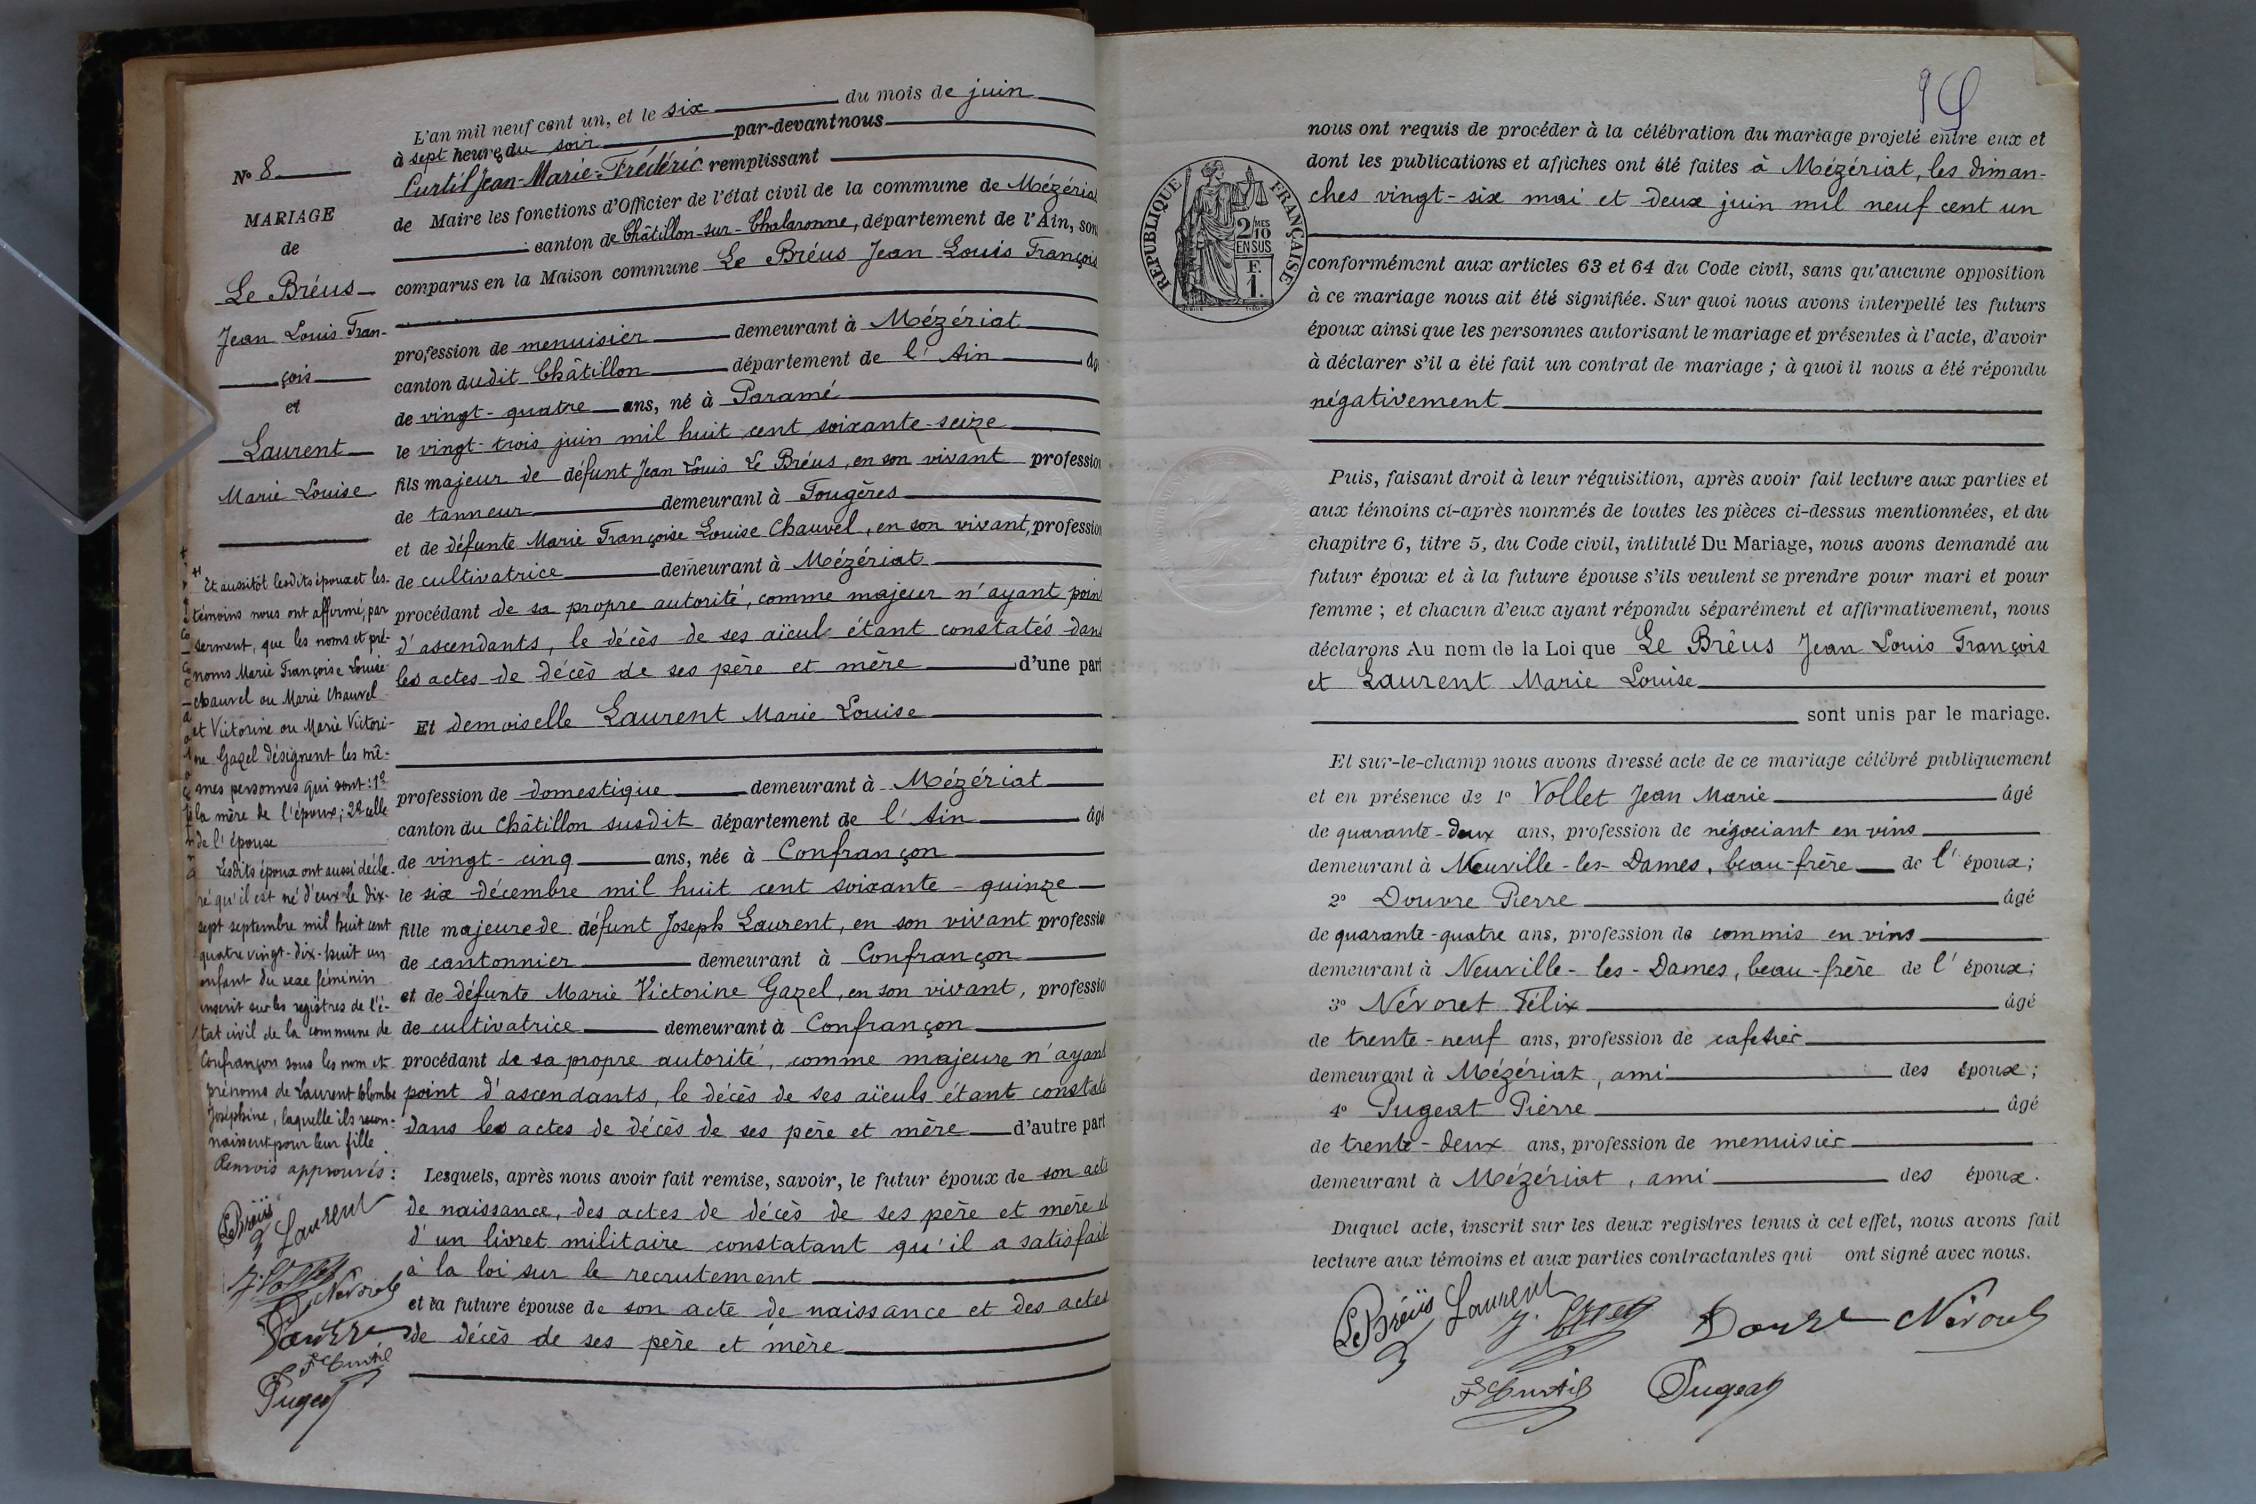 L'an mil neuf cent un, et le six du mois de juin
à sept heures du soir par-devant nous
Curtil Jean-Marie-Frédéric remplissant
de Maire les fonctions d'Officier de l'état civil de la commune de Mézériat
canton de Châtillon-sur-Chalaronne, département de l'Ain, son
comparus en la Maison commune Le Bréus Jean Louis François
profession de menuisier demeurant à Mézériat
canton dudit Châtillon département de l'Ain âg
de vingt-quatre ans, né à Paramé
le vingt-trois juin mil huit cent soixante-seize
fils majeur de défunt Jean Louis Le Bréus, en son vivant profession
de tanneur demeurant à Fougères
et de défunte Marie Françoise Louise Chauvel, en son vivant, profession
de cultivatrice demeurant à Mézériat
procédant de sa propre autorité, comme majeur n'ayant point
d'ascendants, le décès de ses aïeuls étant constatés dans
les actes de décès de ses père et mère d'une part
Et demoiselle Laurent Marie Louise
profession de domestique demeurant à Mézériat
canton du Châtillon susdit département de l'Ain âgé
de vingt-cinq ans, née à Confrançon
le six décembre mil huit cent soixante-quinze
fille majeure de défunt Joseph Laurent, en son vivant professio
de cantonnier demeurant à Confrançon
et de défunte Marie Victorine Gazel, en son vivant, professio
de cultivatrice demeurant à Confrançon
procédant de sa propre autorité, comme majeure n'ayant
point d'ascendants, le décès de ses aïeuls étant constaté
dans les actes de décès de ses père et mère d'autre part
Lesquels, après nous avoir fait remise, savoir, le futur époux de son acte
de naissance, des actes de décès de ses père et mère et
d'un livret militaire constatant qu'il a satisfait
à la loi sur le recrutement
et la future épouse de son acte de naissance et des actes
de décès de ses père et mère
No 8
MARIAGE
de
Le Bréus
Jean Louis Fran-
çois
et
Laurent
Marie Louise
Et aussitôt lesdits époux et les
témoins nous ont affirmé, par
serment, que les noms et pré-
noms Marie Françoise Louise
Chauvel ou Marie Chauvel
et Victorine ou Marie Victori-
ne Gazel désignent les mê-
mes personnes qui sont : 1º
la mère de l'époux ; 2º celle
de l'épouse
Lesdits époux ont aussi décla-
ré qu'il est né d'eux le dix-
sept septembre mil huit cent
quatre vingt-dix-huit un
enfant du sexe féminin
inscrit sur les registres de l'é-
tat civil de la commune de
Confrançon sous les nom et
prénoms de Laurent Colombe
Joséphine, laquelle ils recon-
naissent pour leur fille.
Renvois approuvés :
Le Bréüs
Laurent
J. Vollet
Névoret
Douvre
F Curtil
Pugeat
nous ont requis de procéder à la célébration du mariage projeté entre eux et
dont les publications et affiches ont été faites à Mézériat, les diman-
ches vingt-six mai et deux juin mil neuf cent un
RÉPUBLIQUE FRANÇAISE
2 MES
10
EN SUS
F.
1.
conformément aux articles 63 et 64 du Code civil, sans qu'aucune opposition
à ce mariage nous ait été signifiée. Sur quoi nous avons interpellé les futurs
époux ainsi que les personnes autorisant le mariage et présentes à l'acte, d'avoir
à déclarer s'il a été fait un contrat de mariage ; à quoi il nous a été répondu
négativement
Puis, faisant droit à leur réquisition, après avoir fait lecture aux parties et
aux témoins ci-après nommés de toutes les pièces ci-dessus mentionnées, et du
chapitre 6, titre 5, du Code civil, intitulé Du Mariage, nous avons demandé au
futur époux et à la future épouse s'ils veulent se prendre pour mari et pour
femme ; et chacun d'eux ayant répondu séparément et affirmativement, nous
déclarons Au nom de la Loi que Le Brêus Jean Louis François
et Laurent Marie Louise
sont unis par le mariage.
Et sur-le-champ nous avons dressé acte de ce mariage célébré publiquement
et en présence de 1º Vollet Jean Marie âgé
de quarante-deux ans, profession de négociant en vins
demeurant à Neuville-les-Dames, beau-frère de l'époux ;
2º Douvre Pierre âgé
de quarante-quatre ans, profession de commis en vins
demeurant à Neuville-les-Dames, beau-frère de l'époux ;
3º Névoret Félix âgé
de trente-neuf ans, profession de cafetier
demeurant à Mézériat, ami des époux ;
4º Pugeat Pierre âgé
de trente-deux ans, profession de menuisier
demeurant à Mézériat, ami des époux.
Duquel acte, inscrit sur les deux registres tenus à cet effet, nous avons fait
lecture aux témoins et aux parties contractantes qui ont signé avec nous.
Le Bréüs Laurent J. Vollet Douvre Névoret
F Curtil Pugeat